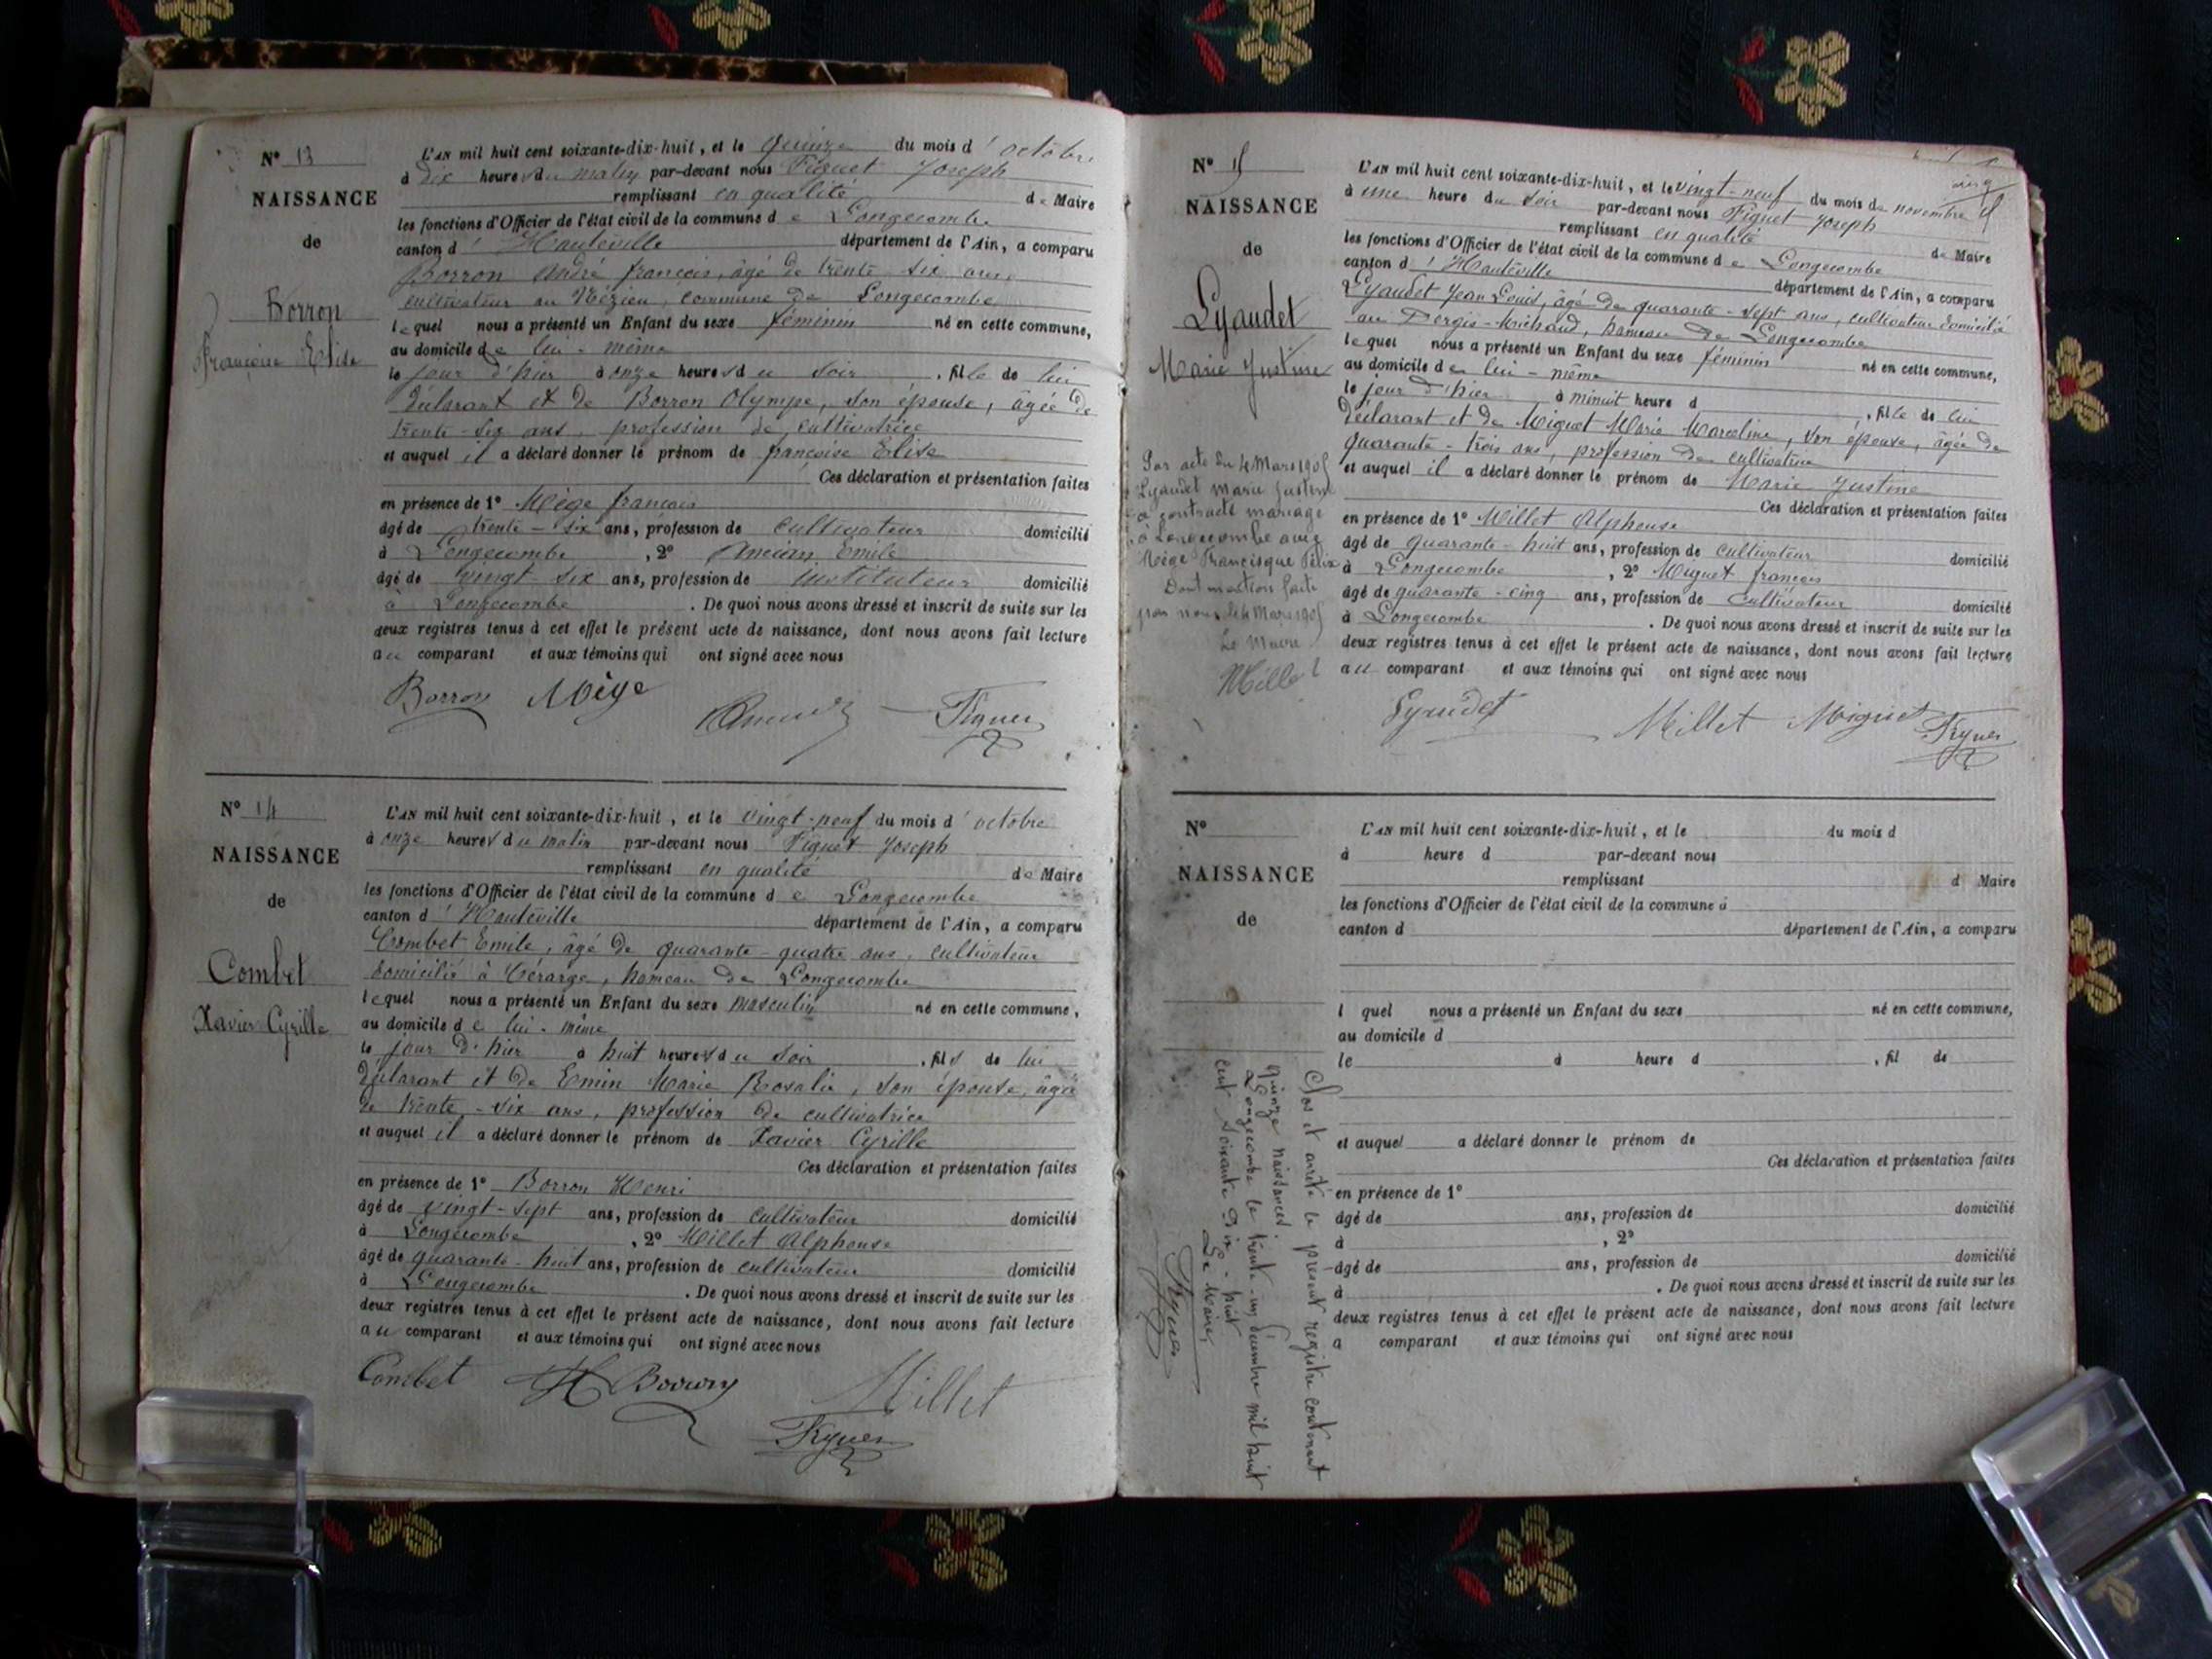 N° 13
NAISSANCE
de
Borron
Françoise Elise
L'AN mil huit cent soixante-dix-huit, et le quinze du mois d'octobre
à dix heures du matin par-devant nous Figuet Joseph
remplissant en qualité de Maire
les fonctions d'Officier de l'état civil de la commune de Longecombe
canton d'Hauteville département de l'Ain, a comparu
Borron André françois, âgé de trente-six ans,
cultivateur au Nézieu, commune de Longecombe
lequel nous a présenté un Enfant du sexe féminin né en cette commune,
au domicile de lui-même
le jour d'hier à onze heures du soir, fille de lui
déclarant et de Borron Olympe, son épouse, âgée de
trente-six ans, profession de cultivatrice
et auquel il a déclaré donner le prénom de françoise Elise
Ces déclaration et présentation faites
en présence de 1° Mège françois
âgé de trente-six ans, profession de cultivateur domicilié
à Longecombe, 2° Ancian Emile
âgé de vingt-six ans, profession de instituteur domicilié
à Longecombe. De quoi nous avons dressé et inscrit de suite sur les
deux registres tenus à cet effet le présent acte de naissance, dont nous avons fait lecture
au comparant et aux témoins qui ont signé avec nous
Borron Mège Figuet
N° 14
NAISSANCE
de
Combet
Xavier Cyrille
L'AN mil huit cent soixante-dix-huit, et le vingt-neuf du mois d'octobre
à onze heures du matin par-devant nous Figuet Joseph
remplissant en qualité de Maire
les fonctions d'Officier de l'état civil de la commune de Longecombe
canton d'Hauteville département de l'Ain, a comparu
Combet Emile, âgé de quarante-quatre ans, cultivateur
domicilié à Cérarge, hameau de Longecombe
lequel nous a présenté un Enfant du sexe masculin né en cette commune,
au domicile de lui-même
le jour d'hier à huit heures du soir, fils de lui
déclarant et de Emin Marie Rosalie, son épouse, âgée
de trente-six ans, profession de cultivatrice
et auquel il a déclaré donner le prénom de Xavier Cyrille
Ces déclaration et présentation faites
en présence de 1° Borron Henri
âgé de vingt-sept ans, profession de cultivateur domicilié
à Longecombe, 2° Millet Alphonse
âgé de quarante-huit ans, profession de cultivateur domicilié
à Longecombe. De quoi nous avons dressé et inscrit de suite sur les
deux registres tenus à cet effet le présent acte de naissance, dont nous avons fait lecture
au comparant et aux témoins qui ont signé avec nous
Combet H Borron Millet
Figuet
N° 15
NAISSANCE
de
Lyaudet
Marie Justine
Par acte du 4 Mars 1905
Lyaudet Marie Justine
a contracté mariage
à Longecombe avec
Mège Francisque Félix
Dont mention faite
par nous le 4 Mars 1905
Le Maire
Millet
L'AN mil huit cent soixante-dix-huit, et le vingt-neuf du mois de novembre
à une heure du soir par-devant nous Figuet Joseph
remplissant en qualité de Maire
les fonctions d'Officier de l'état civil de la commune de Longecombe
canton d'Hauteville département de l'Ain, a comparu
Lyaudet Jean Louis, âgé de quarante-sept ans, cultivateur domicilié
au Dergis-Michaud, hameau de Longecombe
lequel nous a présenté un Enfant du sexe féminin né en cette commune,
au domicile de lui-même
le jour d'hier à minuit heure d, fille de lui
déclarant et de Miguet Marie Marceline, son épouse, âgée de
quarante-trois ans, profession de cultivatrice
et auquel il a déclaré donner le prénom de Marie Justine
Ces déclaration et présentation faites
en présence de 1° Millet Alphonse
âgé de quarante-huit ans, profession de cultivateur domicilié
à Longecombe, 2° Miguet françois
âgé de quarante-cinq ans, profession de cultivateur domicilié
à Longecombe. De quoi nous avons dressé et inscrit de suite sur les
deux registres tenus à cet effet le présent acte de naissance, dont nous avons fait lecture
au comparant et aux témoins qui ont signé avec nous
Lyaudet Millet Miguet Figuet
N°
NAISSANCE
de
L'AN mil huit cent soixante-dix-huit, et le du mois d
à heure d par-devant nous
remplissant d Maire
les fonctions d'Officier de l'état civil de la commune d
canton d département de l'Ain, a comparu
l quel nous a présenté un Enfant du sexe né en cette commune,
au domicile d
le à heure d, fil de
et auquel a déclaré donner le prénom de
Ces déclaration et présentation faites
en présence de 1°
âgé de ans, profession de domicilié
à, 2°
âgé de ans, profession de domicilié
à. De quoi nous avons dressé et inscrit de suite sur les
deux registres tenus à cet effet le présent acte de naissance, dont nous avons fait lecture
a comparant et aux témoins qui ont signé avec nous
Clos et arrêté le présent registre contenant
quinze naissances
Longecombe le trente-un décembre mil huit
cent soixante dix-huit
Le Maire,
Figuet